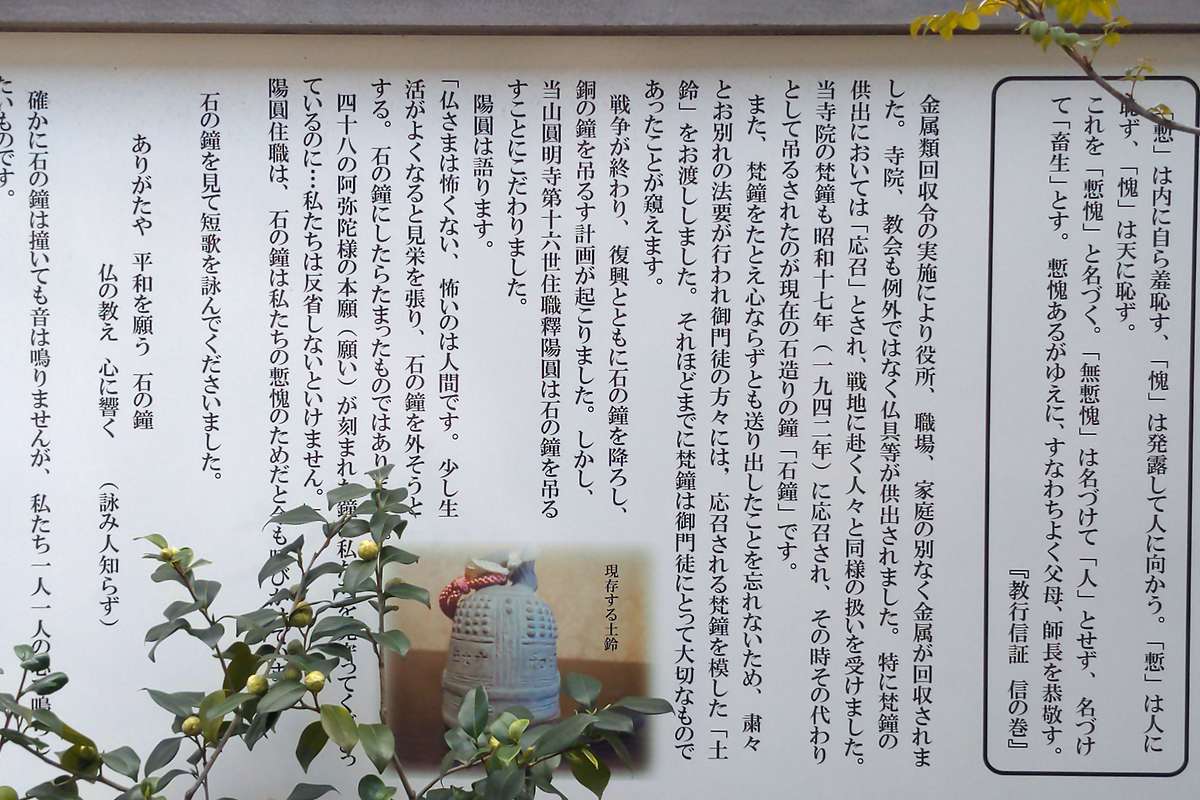 「慙」は内に自ら羞恥す、「愧」は発露して人に向かう。「慙」は人に
恥ず、「愧」は天に恥ず。
これを「慙愧」と名づく。「無慙愧」は名づけて「人」とせず、名づけ
て「畜生」とす。慙愧あるがゆえに、すなわちよく父母、師長を恭敬す。
『教行信証 信の巻』
金属類回収令の実施により役所、職場、家庭の別なく金属が回収されま
した。寺院、教会も例外ではなく仏具等が供出されました。特に梵鐘の
供出においては「応召」とされ、戦地に赴く人々と同様の扱いを受けました。
当寺院の梵鐘も昭和十七年(一九四二年)に応召され、その時その代わり
として吊るされたのが現在の石造りの鐘「石鐘」です。
また、梵鐘をたとえ心ならずとも送り出したことを忘れないため、粛々
とお別れの法要が行われ御門徒の方々には、応召される梵鐘を模した「土
鈴」をお渡ししました。それほどまでに梵鐘は御門徒にとって大切なもので
あったことが窺えます。
戦争が終わり、復興とともに石の鐘を降ろし、
銅の鐘を吊るす計画が起こりました。しかし、
当山圓明寺第十六世住職釋陽圓は石の鐘を吊る
すことにこだわりました。
陽圓は語ります。
「仏さまは怖くない、怖いのは人間です。少し生
活がよくなると見栄を張り、石の鐘を外そうと
する。石の鐘にしたらたまったものではあり
四十八の阿弥陀様の本願(願い)が刻まれた鐘
ているのに…私たちは反省しないといけません。
陽圓住職は、石の鐘は私たちの慙愧のためだと
石の鐘を見て短歌を詠んでくださいました。
ありがたや 平和を願う 石の鐘
仏の教え 心に響く (詠み人知らず)
確かに石の鐘は撞いても音は鳴りませんが、私たち一人一人の
たいものです。
現存する土鈴